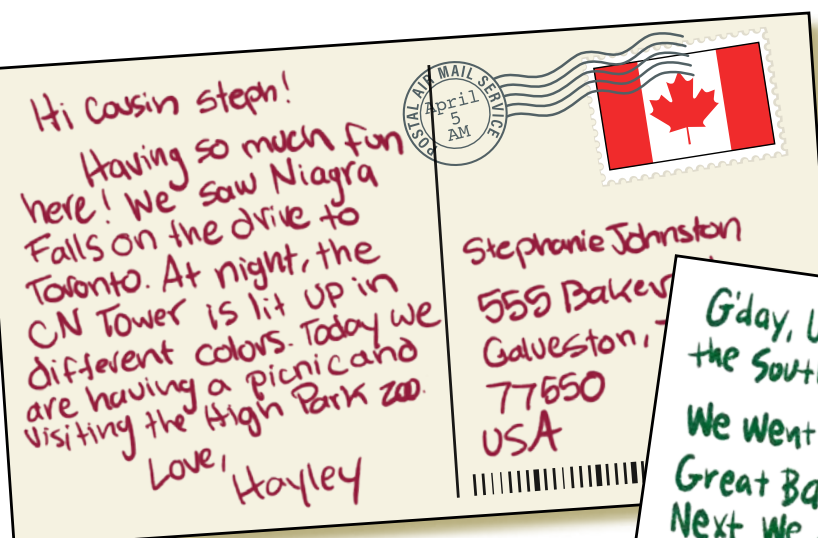 Hi Cousin Steph!
Having so much fun
here! We saw Niagra
Falls on the drive to
Toronto. At night, the
CN Tower is lit up in
different colors. Today we
are having a picnic and
visiting the High Park zoo.
Love,
Hayley
POSTAL AIR MAIL SERVICE
April
5
AM
Stephanie Johnston
555
Galveston,
77550
USA
G'day,
the
We Went
Great
Next We